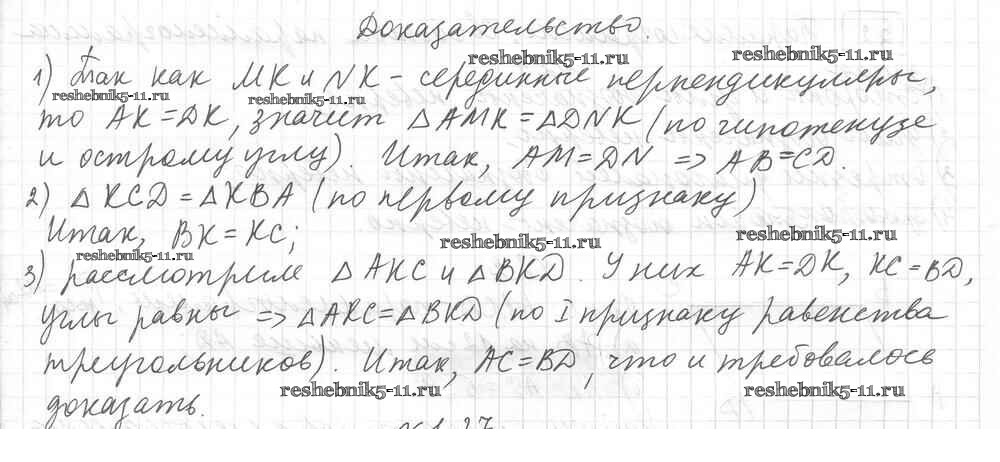 Доказательство.
reshebnik5-11.ru
reshebnik5-11.ru
1) Так как MK и NK - серединные перпендикуляры,
reshebnik5-11.ru
reshebnik5-11.ru
то AK = DK, значит △AMK = △DNK (по гипотенузе
и острому углу). Итак, AM = DN => AB = CD.
2) △KCD = △KBA (по первому признаку)
Итак, BK = KC;
reshebnik5-11.ru
reshebnik5-11.ru
reshebnik5-11.ru
3) рассмотрим △AKC и △BKD. У них AK = DK, KC = BD,
углы равны => △AKC = △BKD (по I признаку равенства
треугольников). Итак, AC = BD, что и требовалось
reshebnik5-11.ru
reshebnik5-11.ru
доказать.